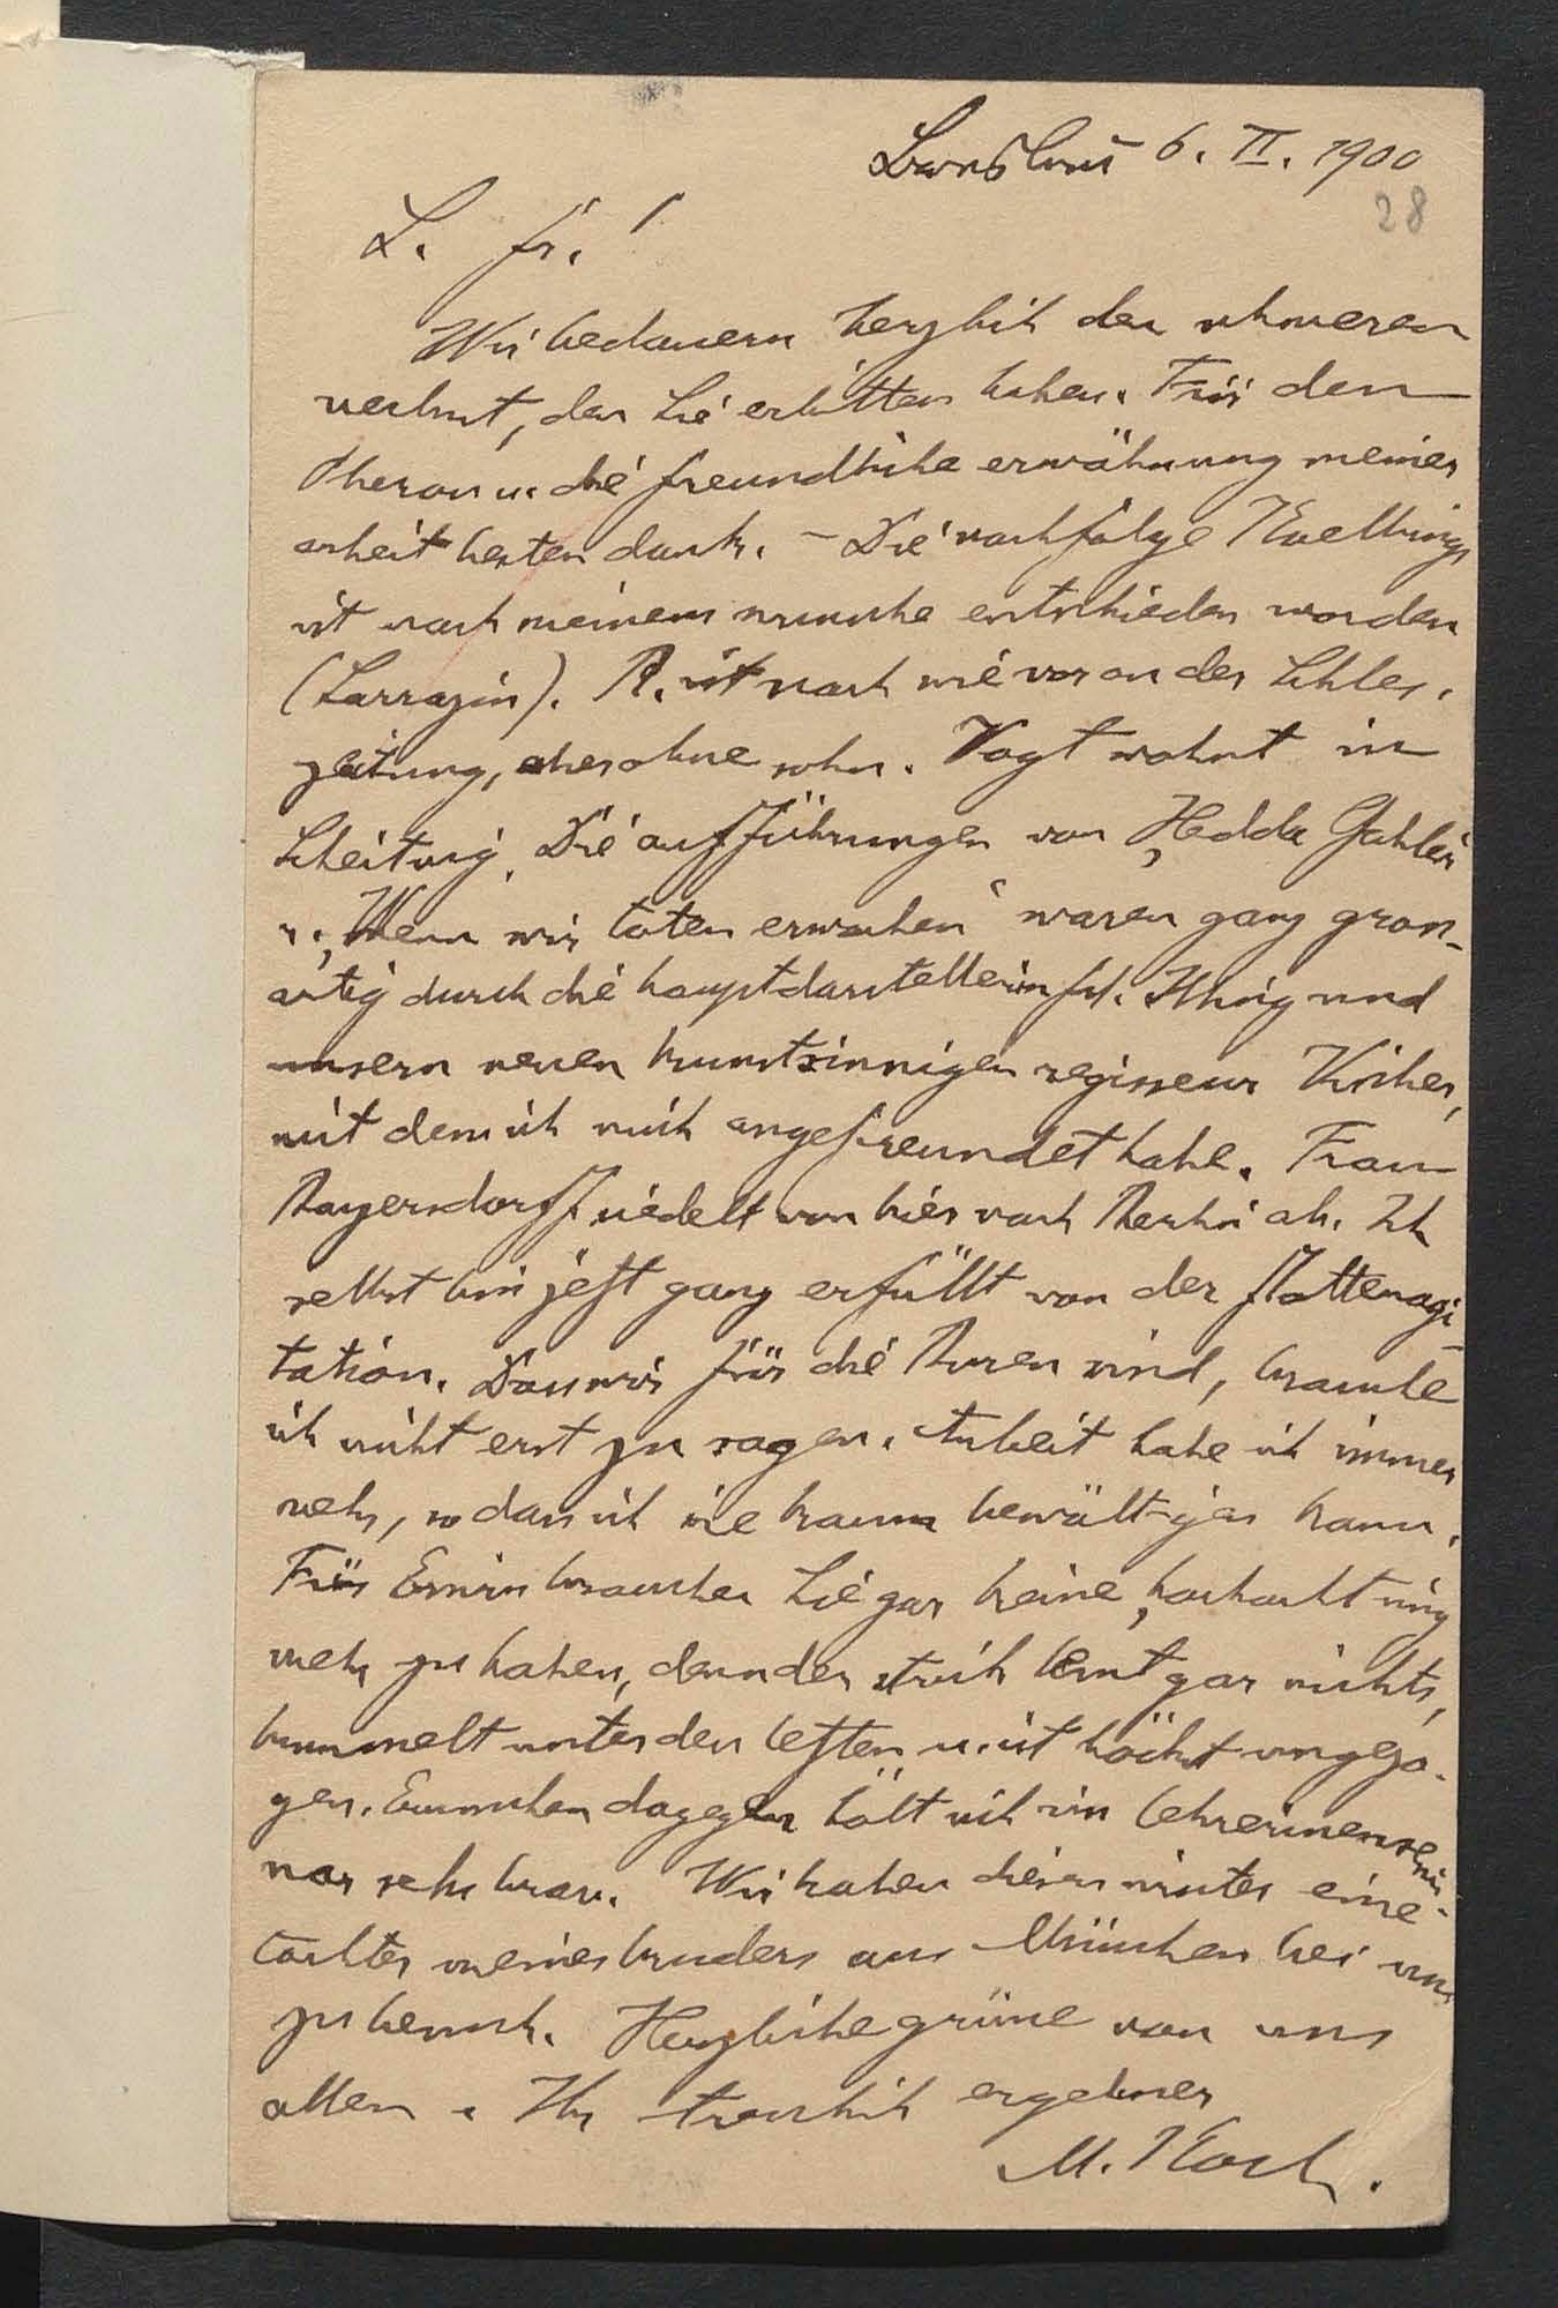 Breslau 6. II. 1900
28
L. fr.!
Wir bedauern herzlich den schweren
verlust, den Sie erlitten haben. Für den
Oberon u. die freundliche erwähnung meiner
arbeit besten dank. – Die nachfolge Koelbings
ist nach meinem wunsche entschieden worden
(Sarrazin). B. ist nach wie vor an der Schles.
zeitung, aber ohne sohn. Vogt wohnt in
Scheitnig. Die aufführungen von „Hedda Gabler
u. „Wenn wir toten erwachen“ waren ganz gross-
artig durch die hauptdarstellerin frl. und
unsern neuen kunstsinnigen regisseur
mit dem ich mich angefreundet habe. Frau
Bayersdorff siedelt von hier nach Berlin ab. Ich
selbst bin jetzt ganz erfüllt von der flottenagi-
tation. Dass wir für die Buren sind, brauche
ich nicht erst zu sagen. Arbeit habe ich immer
mehr, so dass ich sie kaum bewältigen kann.
Für Erwin brauchen Sie gar keine „hochachtung
mehr zu haben, denn der strick lernt gar nichts,
bummelt unter den letzten u. ist höchst ungezo-
gen. dagegen hält sich im lehrerinnensemi-
nar sehr brav. Wir haben diesen winter eine
tochter meines bruders aus München bei uns
zu besuch. Herzliche grüsse von uns
allen. Ihr treulich ergebner
M. Koch.